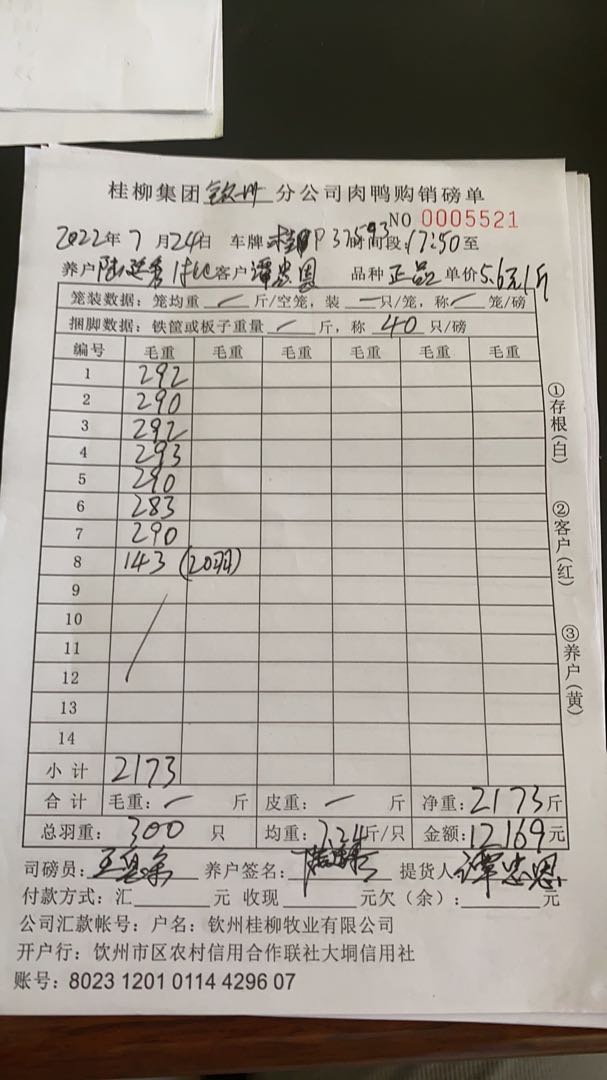 桂柳集团钦州分公司肉鸭购销磅单
NO 0005521
2022年7月24日 车牌 P37593 时间段:17:50至
养户 客户 品种 正品 单价5.6元/斤
笼装数据:笼均重 / 斤/空笼,装 一 只/笼,称 / 笼/磅
捆脚数据:铁筐或板子重量 / 斤,称 40 只/磅
编号 毛重 毛重 毛重 毛重 毛重
1 292
2 290
3 292
4 293
5 290
6 283
7 290
8 143 (20羽)
9
10
11
12
13
14
小计 2173
合计 毛重: 一 斤 皮重: 一 斤 净重:2173斤
总羽重: 300 只 均重:7.24斤/只 金额:12169元
司磅员: 养户签名: 提货人:
付款方式:汇 元 收现 元欠(余): 元
公司汇款帐号:户名:钦州桂柳牧业有限公司
开户行:钦州市区农村信用合作联社大垌信用社
账号:8023 1201 0114 4296 07
①存根(白)
②客户(红)
③养户(黄)